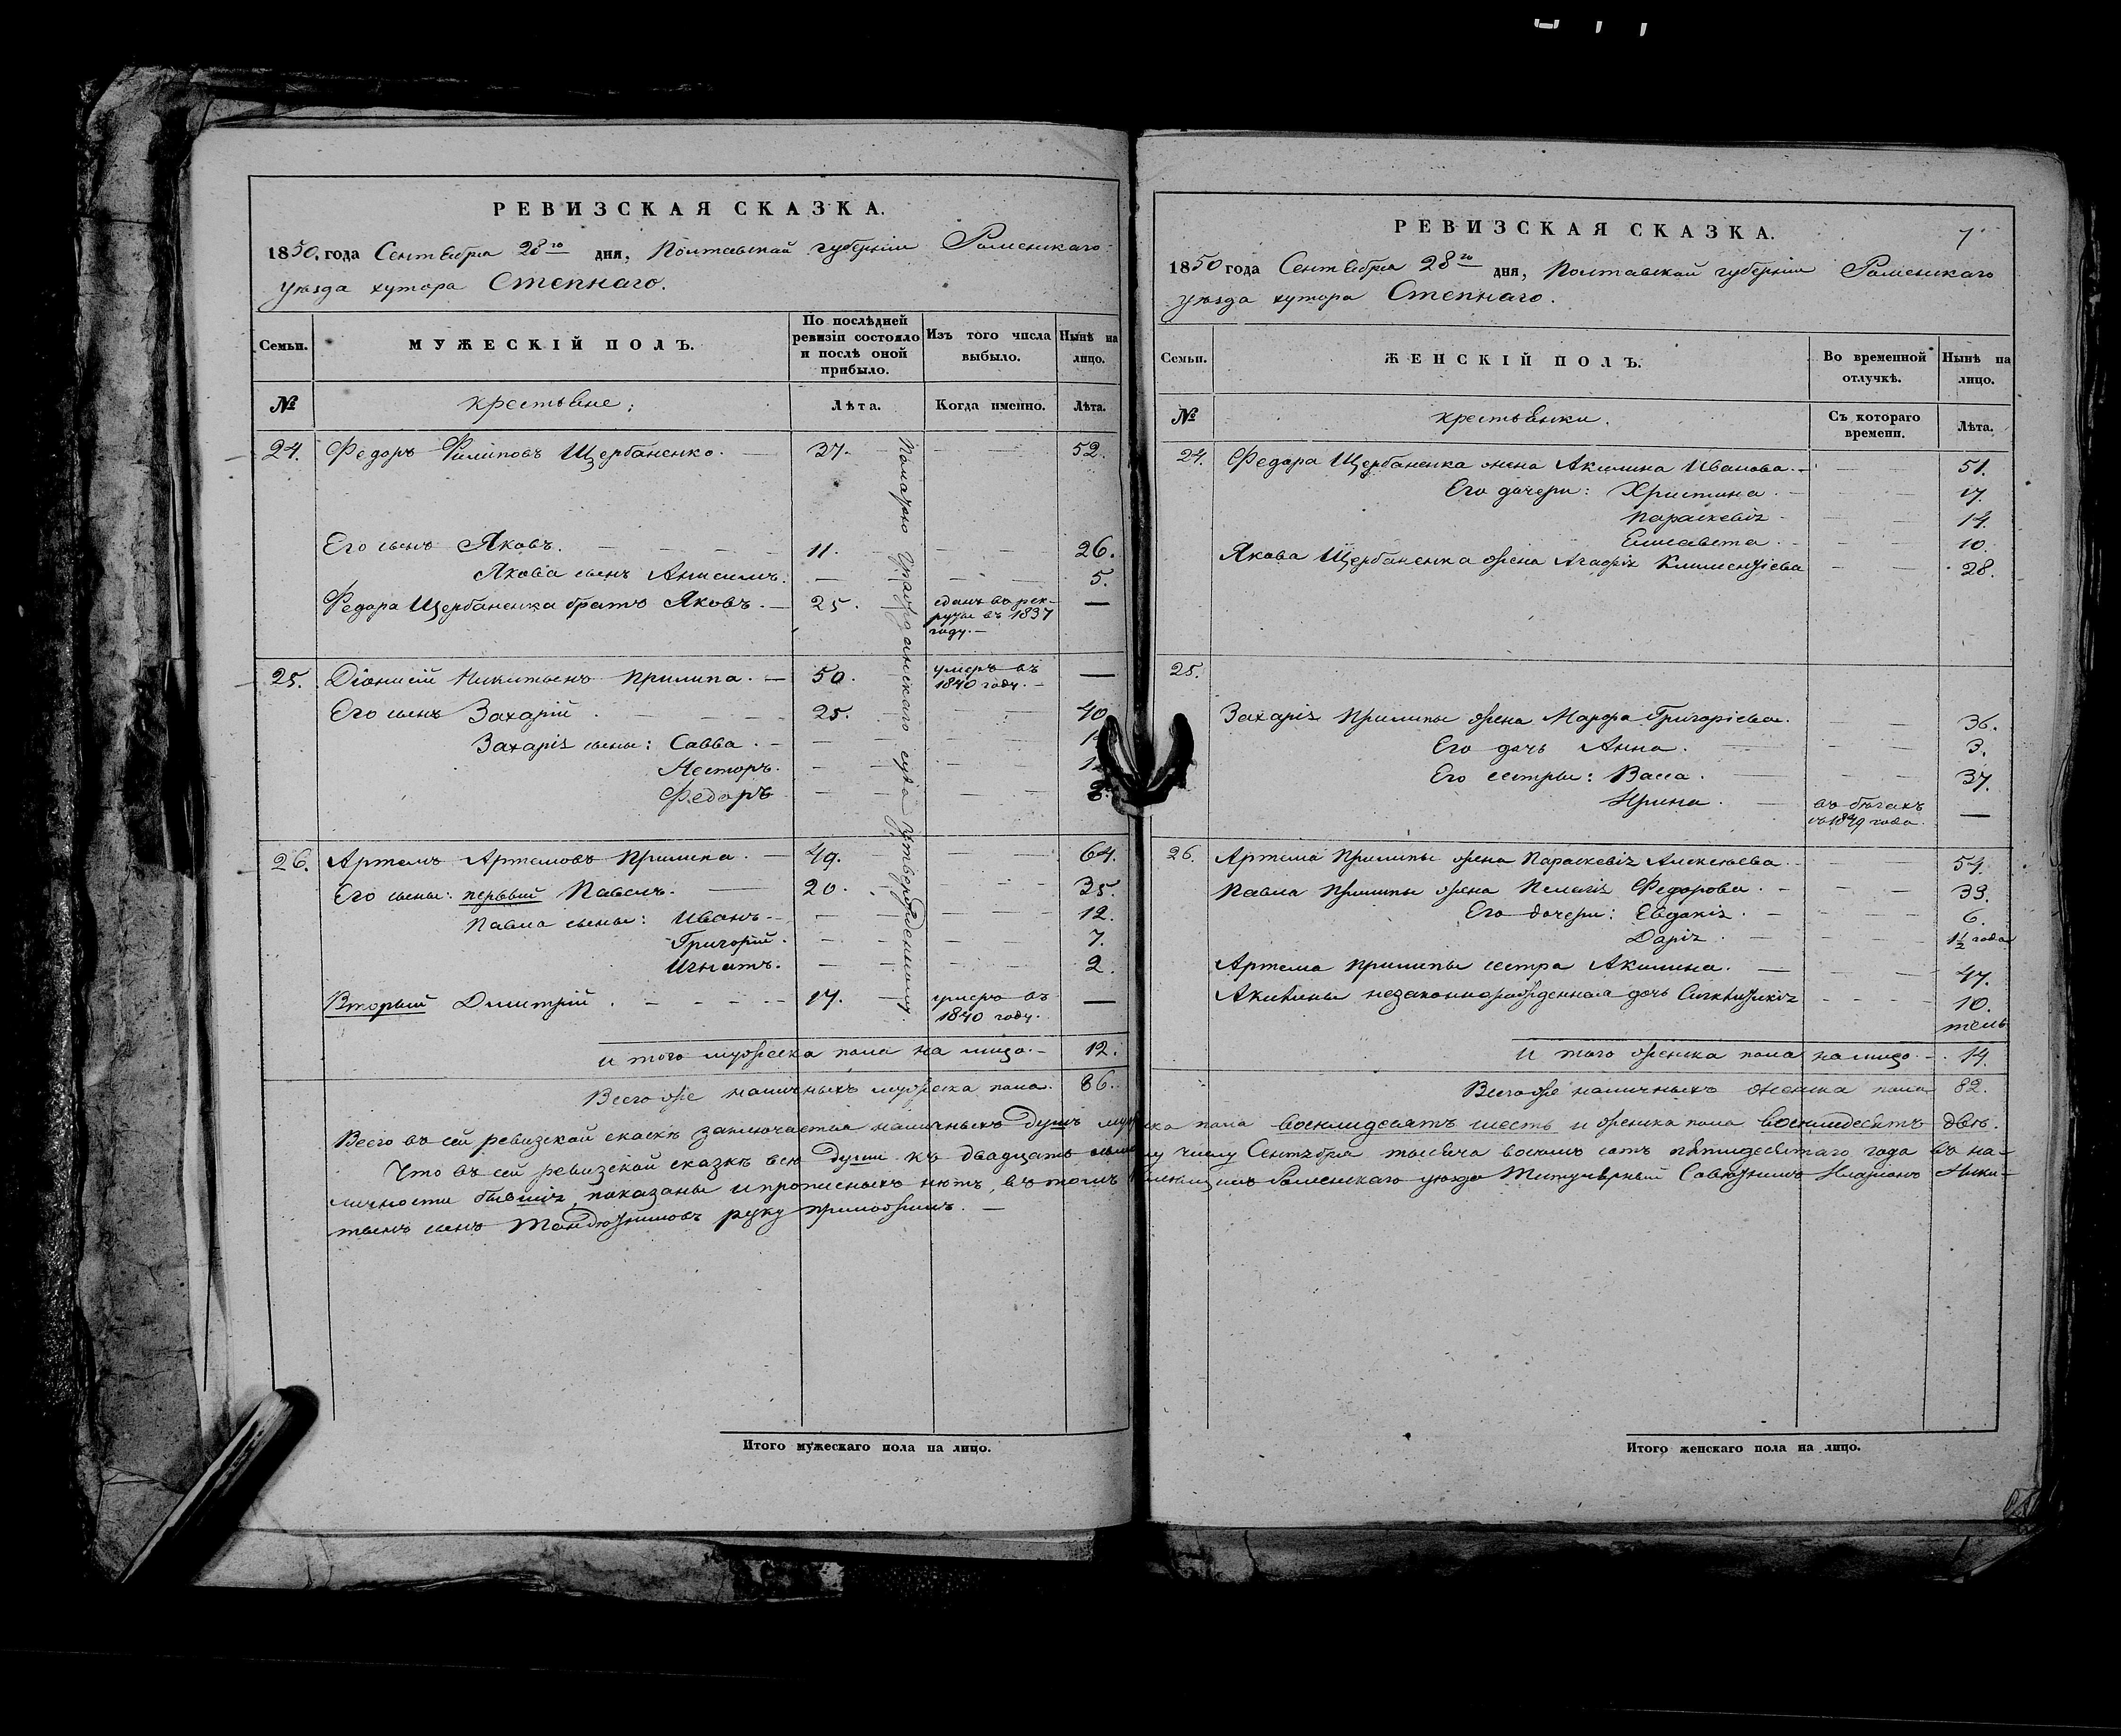 РЕВИЗСКАЯ СКАЗКА.
1850, года Сентября 28го дня, Полтавской губерніи Роменскаго
уѣзда хутора Степнаго.
Семьи.
МУЖЕСКІЙ ПОЛЪ.
По послѣдней
ревизіи состояло
и послѣ оной
прибыло.
Изъ того числа
выбыло.
Нынѣ на
лицо.
№
крестьяне:
Лѣта.
Когда именно.
Лѣта.
24. Федоръ Филиповъ Щербаненко. 37. 52.
Его сынъ Яковъ. 11. 26.
Якова сынъ Анисимъ. 5.
Федора Щербаненка братъ Яковъ. 25. сданъ въ рек-
руты въ 1837
году.
25. Діонисій Никитинъ Прилипа. 50. умеръ въ
1840 году.
Его сынъ Захарій. 25. 40
Захарія сыны: Савва.
Несторъ.
Федоръ
26. Артемъ Артемовъ Прилипа. 49. 64.
Его сыны: первый Павелъ. 20. 35.
Павла сыны: Иванъ. 12.
Григорій. 7.
Игнатъ. 2.
Вторый Димитрій. 17. умеръ въ
1840 году.
суда утвержденному.
и того мужеска пола на лицо. 12.
Всего же наличныхъ мужеска пола. 86.
РЕВИЗСКАЯ СКАЗКА.
7
1850 года Сентября 28го дня, Полтавской губерніи Роменскаго
уѣзда хутора Степнаго.
Семьи.
ЖЕНСКІЙ ПОЛЪ.
Во временной
отлучкѣ.
Нынѣ на
лицо.
№
крестьянки.
Съ котораго
времени.
Лѣта.
24. Федора Щербаненка жена Акилина Иванова. 51.
Его дочери: Христина. 17.
Параскевія 14.
Елисавета. 10.
Якова Щербаненка жена Агафія Климентіева 28.
25.
Захарія Прилипы жена Марфа Григоріева. 36.
Его дочь Анна. 3.
Его сестры: Васса. 37.
Ирина. въ бѣгахъ
съ 1849 года.
26. Артема Прилипы жена Параскевія Алексѣева. 54.
Павла Прилипы жена Пелагія Федорова. 33.
Его дочери: Евдокія. 6.
Дарія. 1½ года
Артема Прилипы сестра Акилина. 47.
Акилины незаконнорожденная дочь 10.
и того женска пола на лицо. 14.
Всего же наличныхъ женска пола 82.
Всего въ сей ревизской сказкѣ заключается наличныхъ душъ мужеска пола восемдесятъ шесть и женска пола восемдесятъ двѣ.
Что въ сей ревизской сказкѣ всѣ души къ двадцать числу Сентября тысяча восемь сотъ пятидесятаго года въ на-
личности бывшія показаны и прописныхъ нѣтъ, въ томъ Роменскаго уѣзда Титулярный Совѣтникъ Ники-
тинъ сынъ руку приложилъ.
Итого мужескаго пола на лицо.
Итого женскаго пола на лицо.